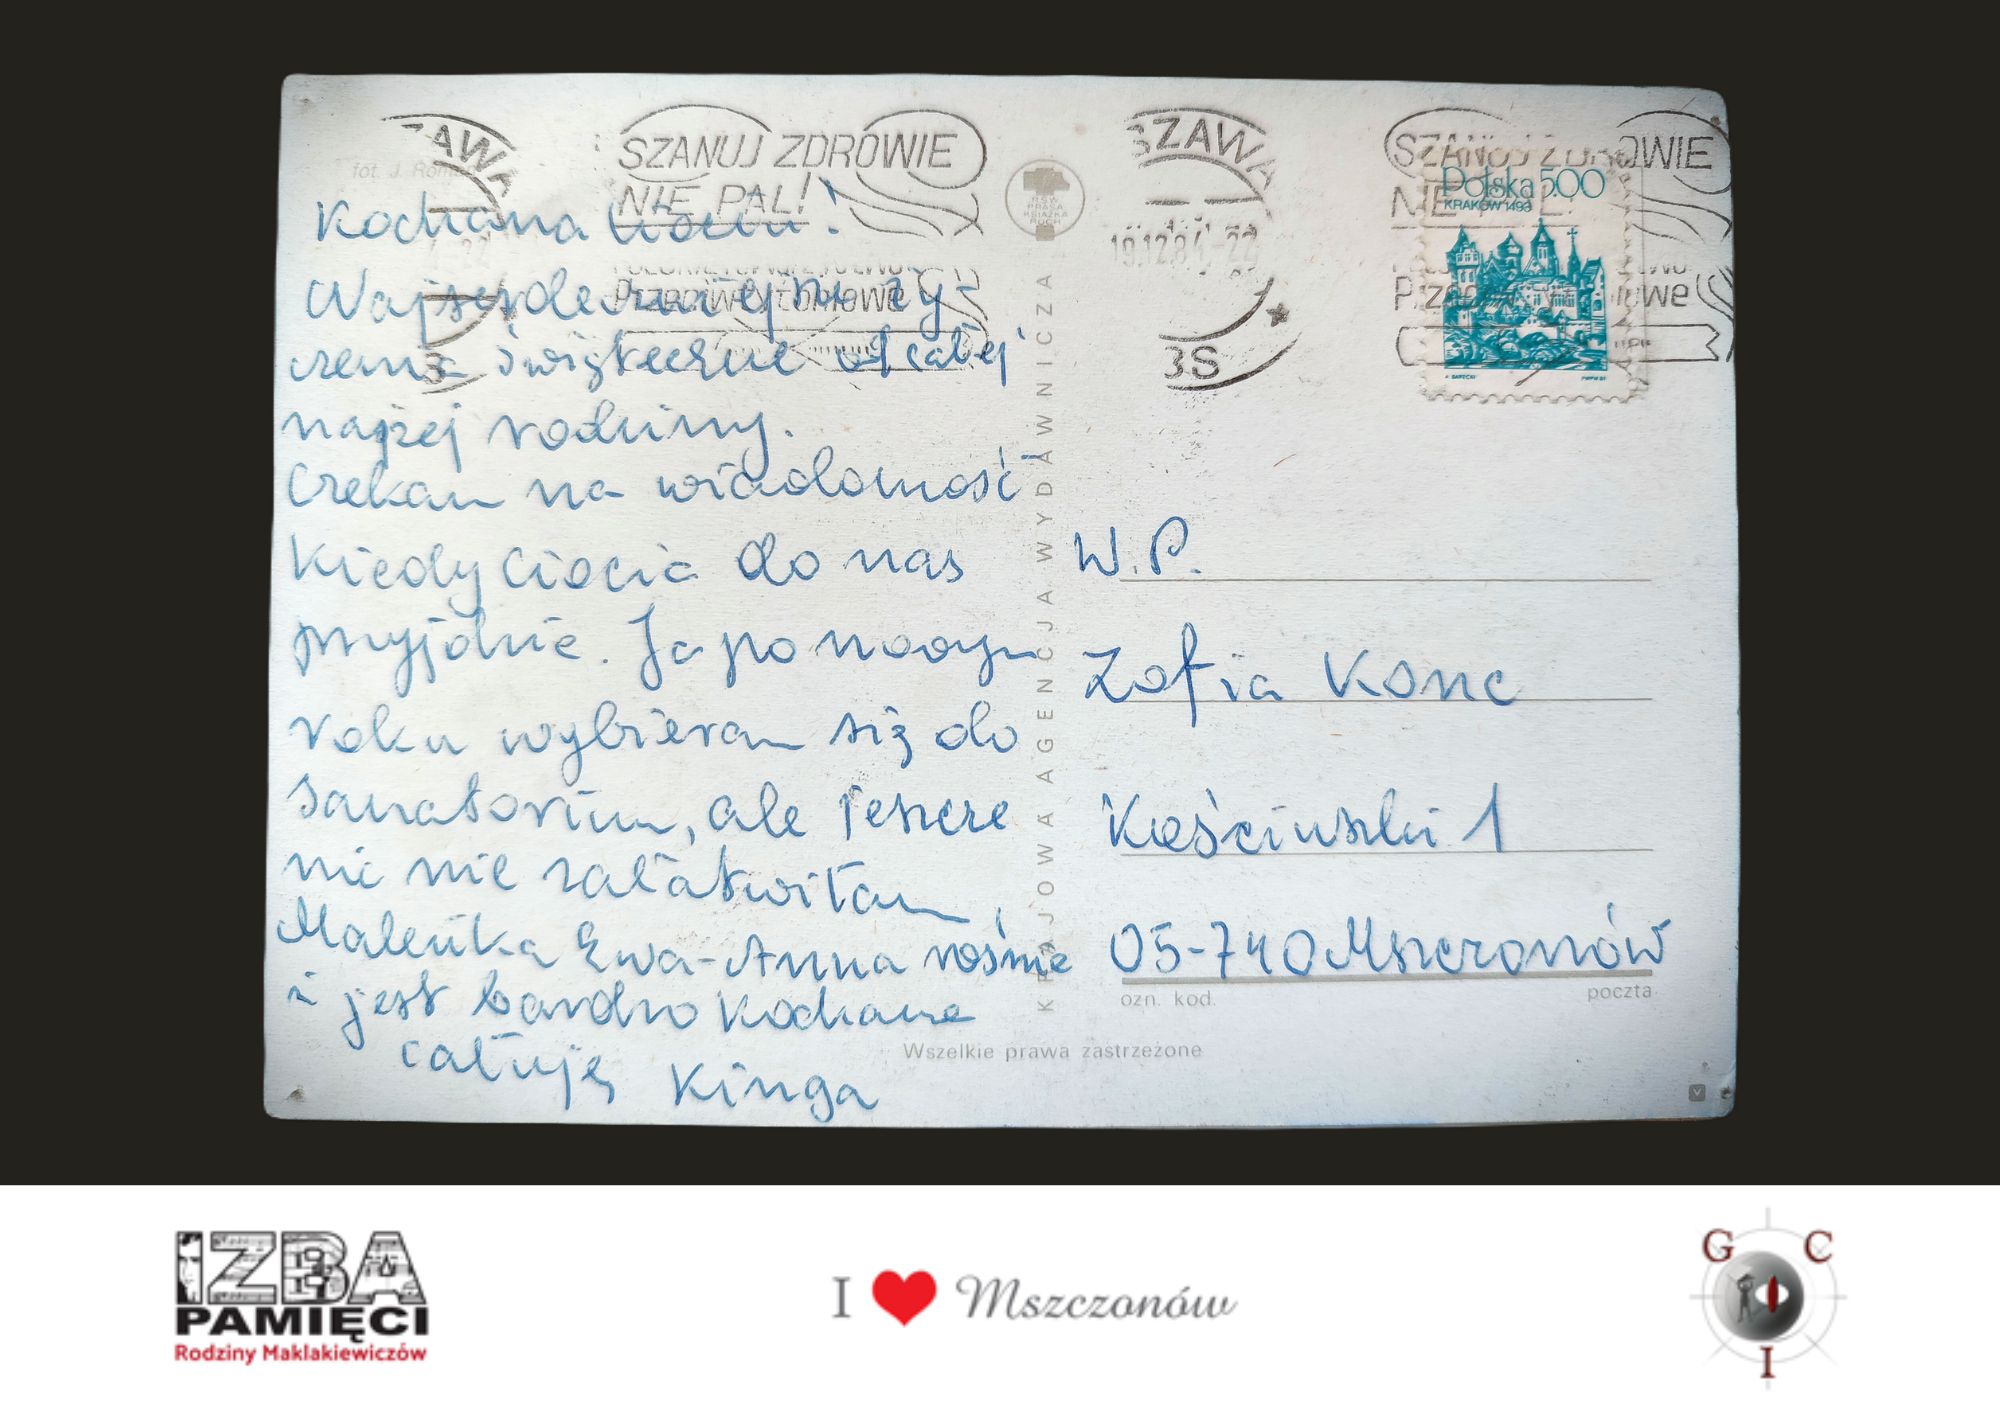 ZAWA
SZANUJ ZDRÓWIE
NIE PAL!
SZAWA
SZANUJ ZDRÓWIE
NIE PAL!
fot. J.
R.S.W.
PRASA
KSIĄŻKA
RUCH
Polska 500
KRAKÓW 1493
19.12.84.-22
3S
Kochana Ciociu!
Najserdeczniejsze ży-
czenia świąteczne od całej
naszej rodziny.
Czekam na wiadomość
kiedy Ciocia do nas
przyjdzie. Ja po nowym
roku wybieram się do
sanatorium, ale jeszcze
nic nie załatwiłam.
Maleńka Ewa-Anna rośnie
i jest bardzo kochana
całuję Kinga
KRAJOWA AGENCJA WYDAWNICZA
W.P.
Zofia Konc
Kościuszki 1
05-740 Mszczonów
ozn. kod.
poczta
Wszelkie prawa zastrzeżone
IZBA
PAMIĘCI
Rodziny Maklakiewiczów
I Mszczonów
G C
I